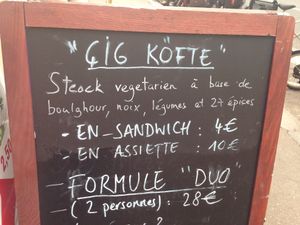 "ÇIG KÖFTE"
Steack vegetarien à base de
boulghour, noix, légumes et 27 épices
- EN SANDWICH : 4€
- EN ASSIETTE : 10€
- FORMULE "DUO"
- (2 personnes) : 28€